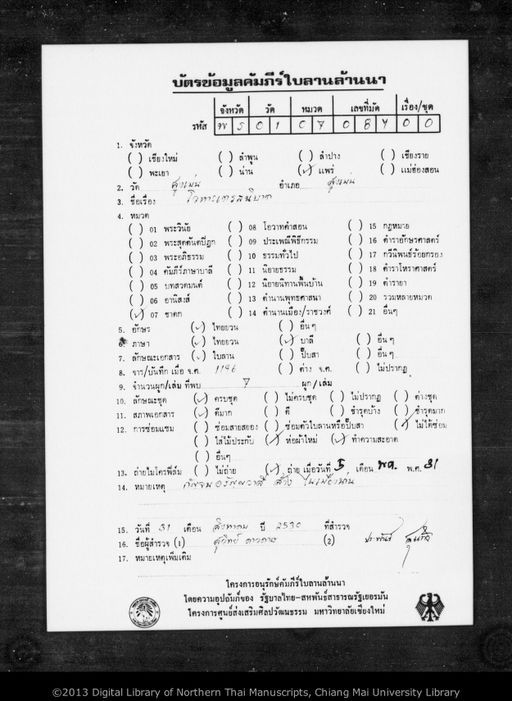 บัตรข้อมูลคัมภีร์ใบลานล้านนา
จังหวัด วัด หมวด เลขที่มัด เรื่อง/ชุด
รหัส พร 5 0 1 0 7 0 8 4 0 0
1. จังหวัด
( ) เชียงใหม่ ( ) ลำพูน ( ) ลำปาง ( ) เชียงราย
( ) พะเยา ( ) น่าน (✓) แพร่ ( ) แม่ฮ่องสอน
2. วัด สูงเม่น อำเภอ สูงเม่น
3. ชื่อเรื่อง
4. หมวด
( ) 01 พระวินัย ( ) 08 โอวาทคำสอน ( ) 15 กฎหมาย
( ) 02 พระสุตตันตปิฎก ( ) 09 ประเพณีพิธีกรรม ( ) 16 ตำราอักษรศาสตร์
( ) 03 พระอภิธรรม ( ) 10 ธรรมทั่วไป ( ) 17 กวีนิพนธ์ร้อยกรอง
( ) 04 คัมภีร์ภาษาบาลี ( ) 11 นิยายธรรม ( ) 18 ตำราโหราศาสตร์
( ) 05 บทสวดมนต์ ( ) 12 นิยายนิทานพื้นบ้าน ( ) 19 ตำรายา
( ) 06 อานิสงส์ ( ) 13 ตำนานพุทธศาสนา ( ) 20 รวมหลายหมวด
(✓) 07 ชาดก ( ) 14 ตำนานเมือง/ราชวงศ์ ( ) 21 อื่นๆ
5. อักษร (✓) ไทยยวน ( ) อื่นๆ
6. ภาษา (✓) ไทยยวน (✓) บาลี ( ) อื่นๆ
7. ลักษณะเอกสาร (✓) ใบลาน ( ) ปั๊บสา ( ) อื่นๆ
8. จาร/บันทึก เมื่อ จ.ศ. 1196 ( ) ค่าง จ.ศ. ( ) ไม่ปรากฏ
9. จำนวนผูก/เล่ม ที่พบ 7 ผูก/เล่ม
10. ลักษณะชุด (✓) ครบชุด ( ) ไม่ครบชุด ( ) ไม่ปรากฏ ( ) ค่างชุด
11. สภาพเอกสาร (✓) ดีมาก ( ) ดี ( ) ชำรุดบ้าง ( ) ชำรุดมาก
12. การซ่อมแซม ( ) ซ่อมสายสยอง ( ) ซ่อมตัวใบลานหรือปั๊บสา (✓) ไม่ได้ซ่อม
( ) ใส่ไม้ประกับ (✓) ห่อผ้าใหม่ (✓) ทำความสะอาด
( ) อื่นๆ
13. ถ่ายไมโครฟิล์ม ( ) ไม่ถ่าย (✓) ถ่าย เมื่อวันที่ 5 เดือน พ.ย. พ.ศ. 31
14. หมายเหตุ
15. วันที่ 31 เดือน สิงหาคม ปี 2530 ที่สำรวจ
16. ชื่อผู้สำรวจ (1) (2)
17. หมายเหตุเพิ่มเติม
โครงการอนุรักษ์คัมภีร์ใบลานล้านนา
โดยความอุปถัมภ์ของ รัฐบาลไทย-สหพันธ์สาธารณรัฐเยอรมัน
โครงการศูนย์ส่งเสริมศิลปวัฒนธรรม มหาวิทยาลัยเชียงใหม่
©2013 Digital Library of Northern Thai Manuscripts, Chiang Mai University Library